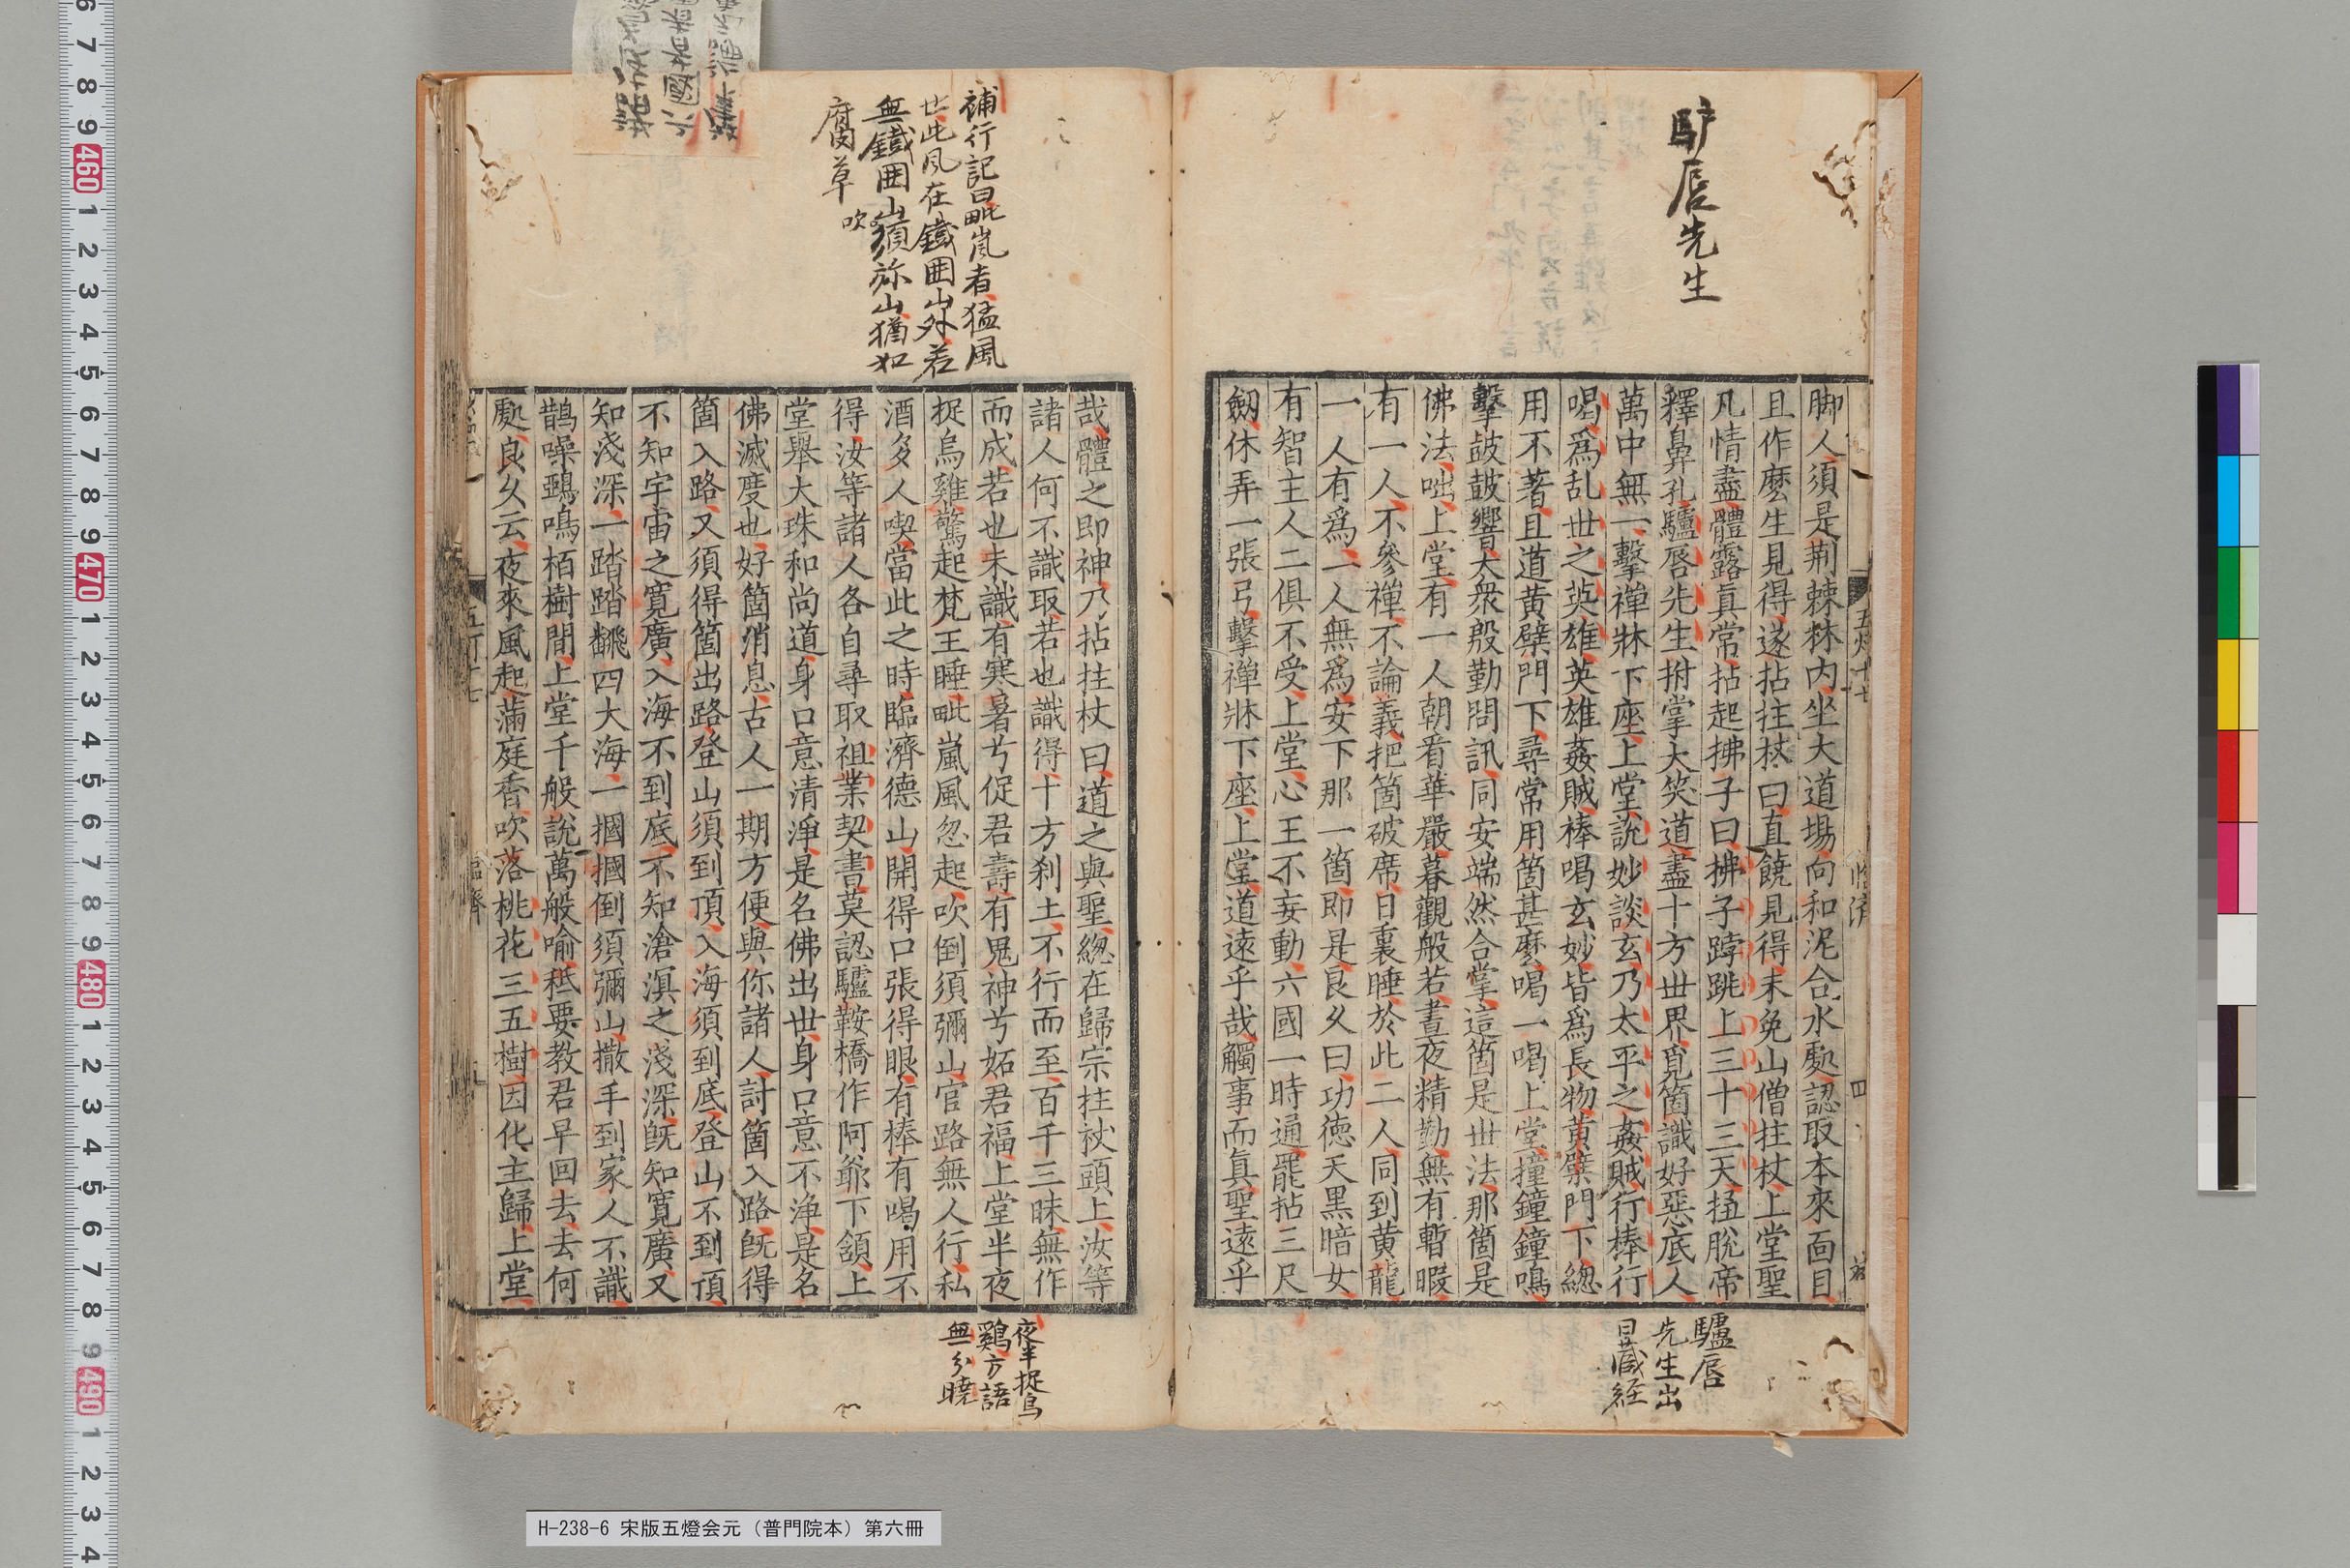 馿唇先生
脚人須是荆棘林内坐大道場向和泥合水䖏認取本來面目
且作麽生見得遂拈拄杖曰直饒見得未免山僧拄杖上堂聖
凡情盡體露眞常拈起拂子曰拂子踍跳上三十三天扭脫帝
釋鼻孔驢唇先生拊掌大笑道盡十方世界覓箇識好惡底人
萬中無一擊禪牀下座上堂說妙談玄乃太平之姦賊行棒行
喝爲乱世之英雄英雄姦賊棒喝玄妙皆爲長物黄檗門下緫
用不著且道黄檗門下尋常用箇甚麽喝一喝上堂撞鐘鐘鳴
擊鼓鼓響大衆殷勤問訊同安端然合掌這箇是世法那箇是
佛法咄上堂有一人朝看華嚴暮觀般若晝夜精勤無有暫暇
有一人不參禪不論義把箇破席日裏睡於此二人同到黄龍
一人有爲一人無爲安下那一箇即是良久曰功德天黑暗女
有智主人二俱不受上堂心王不妄動六國一時通罷拈三尺
劔休弄一張弓擊禪牀下座上堂道遠乎哉觸事而眞聖遠乎
驢唇
先生出
日藏経
補行記曰毗嵐者猛風
也此風在鐵囲山外若
無鐵囲山須弥山猶如
吹
腐草
哉體之即神乃拈拄杖曰道之與聖緫在歸宗拄杖頭上汝等
諸人何不識取若也識得十方刹土不行而至百千三昧無作
而成若也未識有寒暑兮促君壽有鬼神兮妬君福上堂半夜
捉烏雞驚起梵王睡毗嵐風忽起吹倒須彌山官路無人行私
酒多人喫當此之時臨濟德山開得口張得眼有棒有喝用不
得汝等諸人各自尋取祖業契書莫認驢鞍橋作阿爺下頷上
堂舉大珠和尚道身口意清淨是名佛出世身口意不淨是名
佛滅度也好箇消息古人一期方便與你諸人討箇入路旣得
箇入路又須得箇出路登山須到頂入海須到底登山不到頂
不知宇宙之寬廣入海不到底不知滄溟之淺深旣知寬廣又
知淺深一踏踏飜四大海一摑摑倒須彌山撒手到家人不識
鵲噪鵶鳴栢樹間上堂千般說萬般喻秪要教君早回去去何
䖏良久云夜來風起滿庭香吹落桃花三五樹因化主歸上堂
夜半捉烏
鷄方語
無分曉
H-238-6 宋版五燈会元（普門院本）第六冊